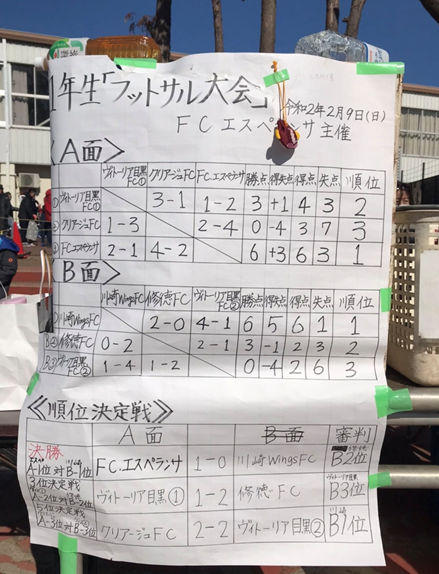 1年生「フットサル大会」
令和2年2月9日(日)
FCエスペランサ 主催
〈A面〉
ヴィトーリア目黒FC① クリアージュFC FC.エスペランサ 勝点 得失点 得点 失点 順位
① ヴィトーリア目黒FC① 3-1 1-2 3 +1 4 3 2
② クリアージュFC 1-3 2-4 0 -4 3 7 3
③ FCエスペランサ 2-1 4-2 6 +3 6 3 1
B面〉
川崎WingsFC 修徳FC ヴィトーリア目黒FC② 勝点 得失点 得点 失点 順位
川崎WingsFC 2-0 4-1 6 5 6 1 1
B② 修徳FC 0-2 2-1 3 -1 2 3 2
B③ ヴィトーリア目黒FC② 1-4 1-2 0 -4 2 6 3
《順位決定戦》
A面 B面 審判
決勝 A-1位対B-1位 FC.エスペランサ 1-0 川崎WingsFC B2位
3位決定戦 A-2位対B-2位 ヴィトーリア目黒① 1-2 修徳FC B3位
5位決定戦 A-3位対B-3位 クリアージュFC 2-2 ヴィトーリア目黒② B1位